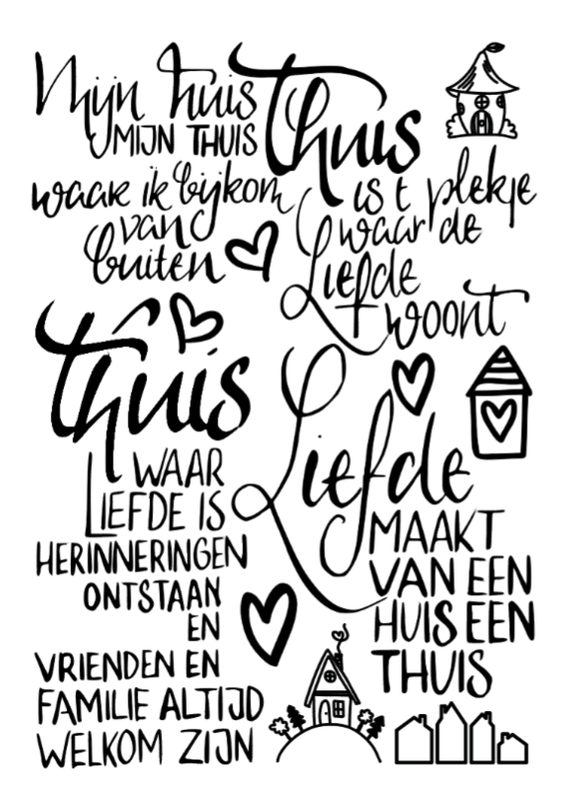 Mijn huis
MIJN THUIS
waar ik bijkom
van
buiten
Thuis
is t plekje
waar de
Liefde
woont
thuis
WAAR
LIEFDE IS
HERINNERINGEN
ONTSTAAN
EN
VRIENDEN EN
FAMILIE ALTIJD
WELKOM ZIJN
Liefde
MAAKT
VAN EEN
HUIS EEN
THUIS